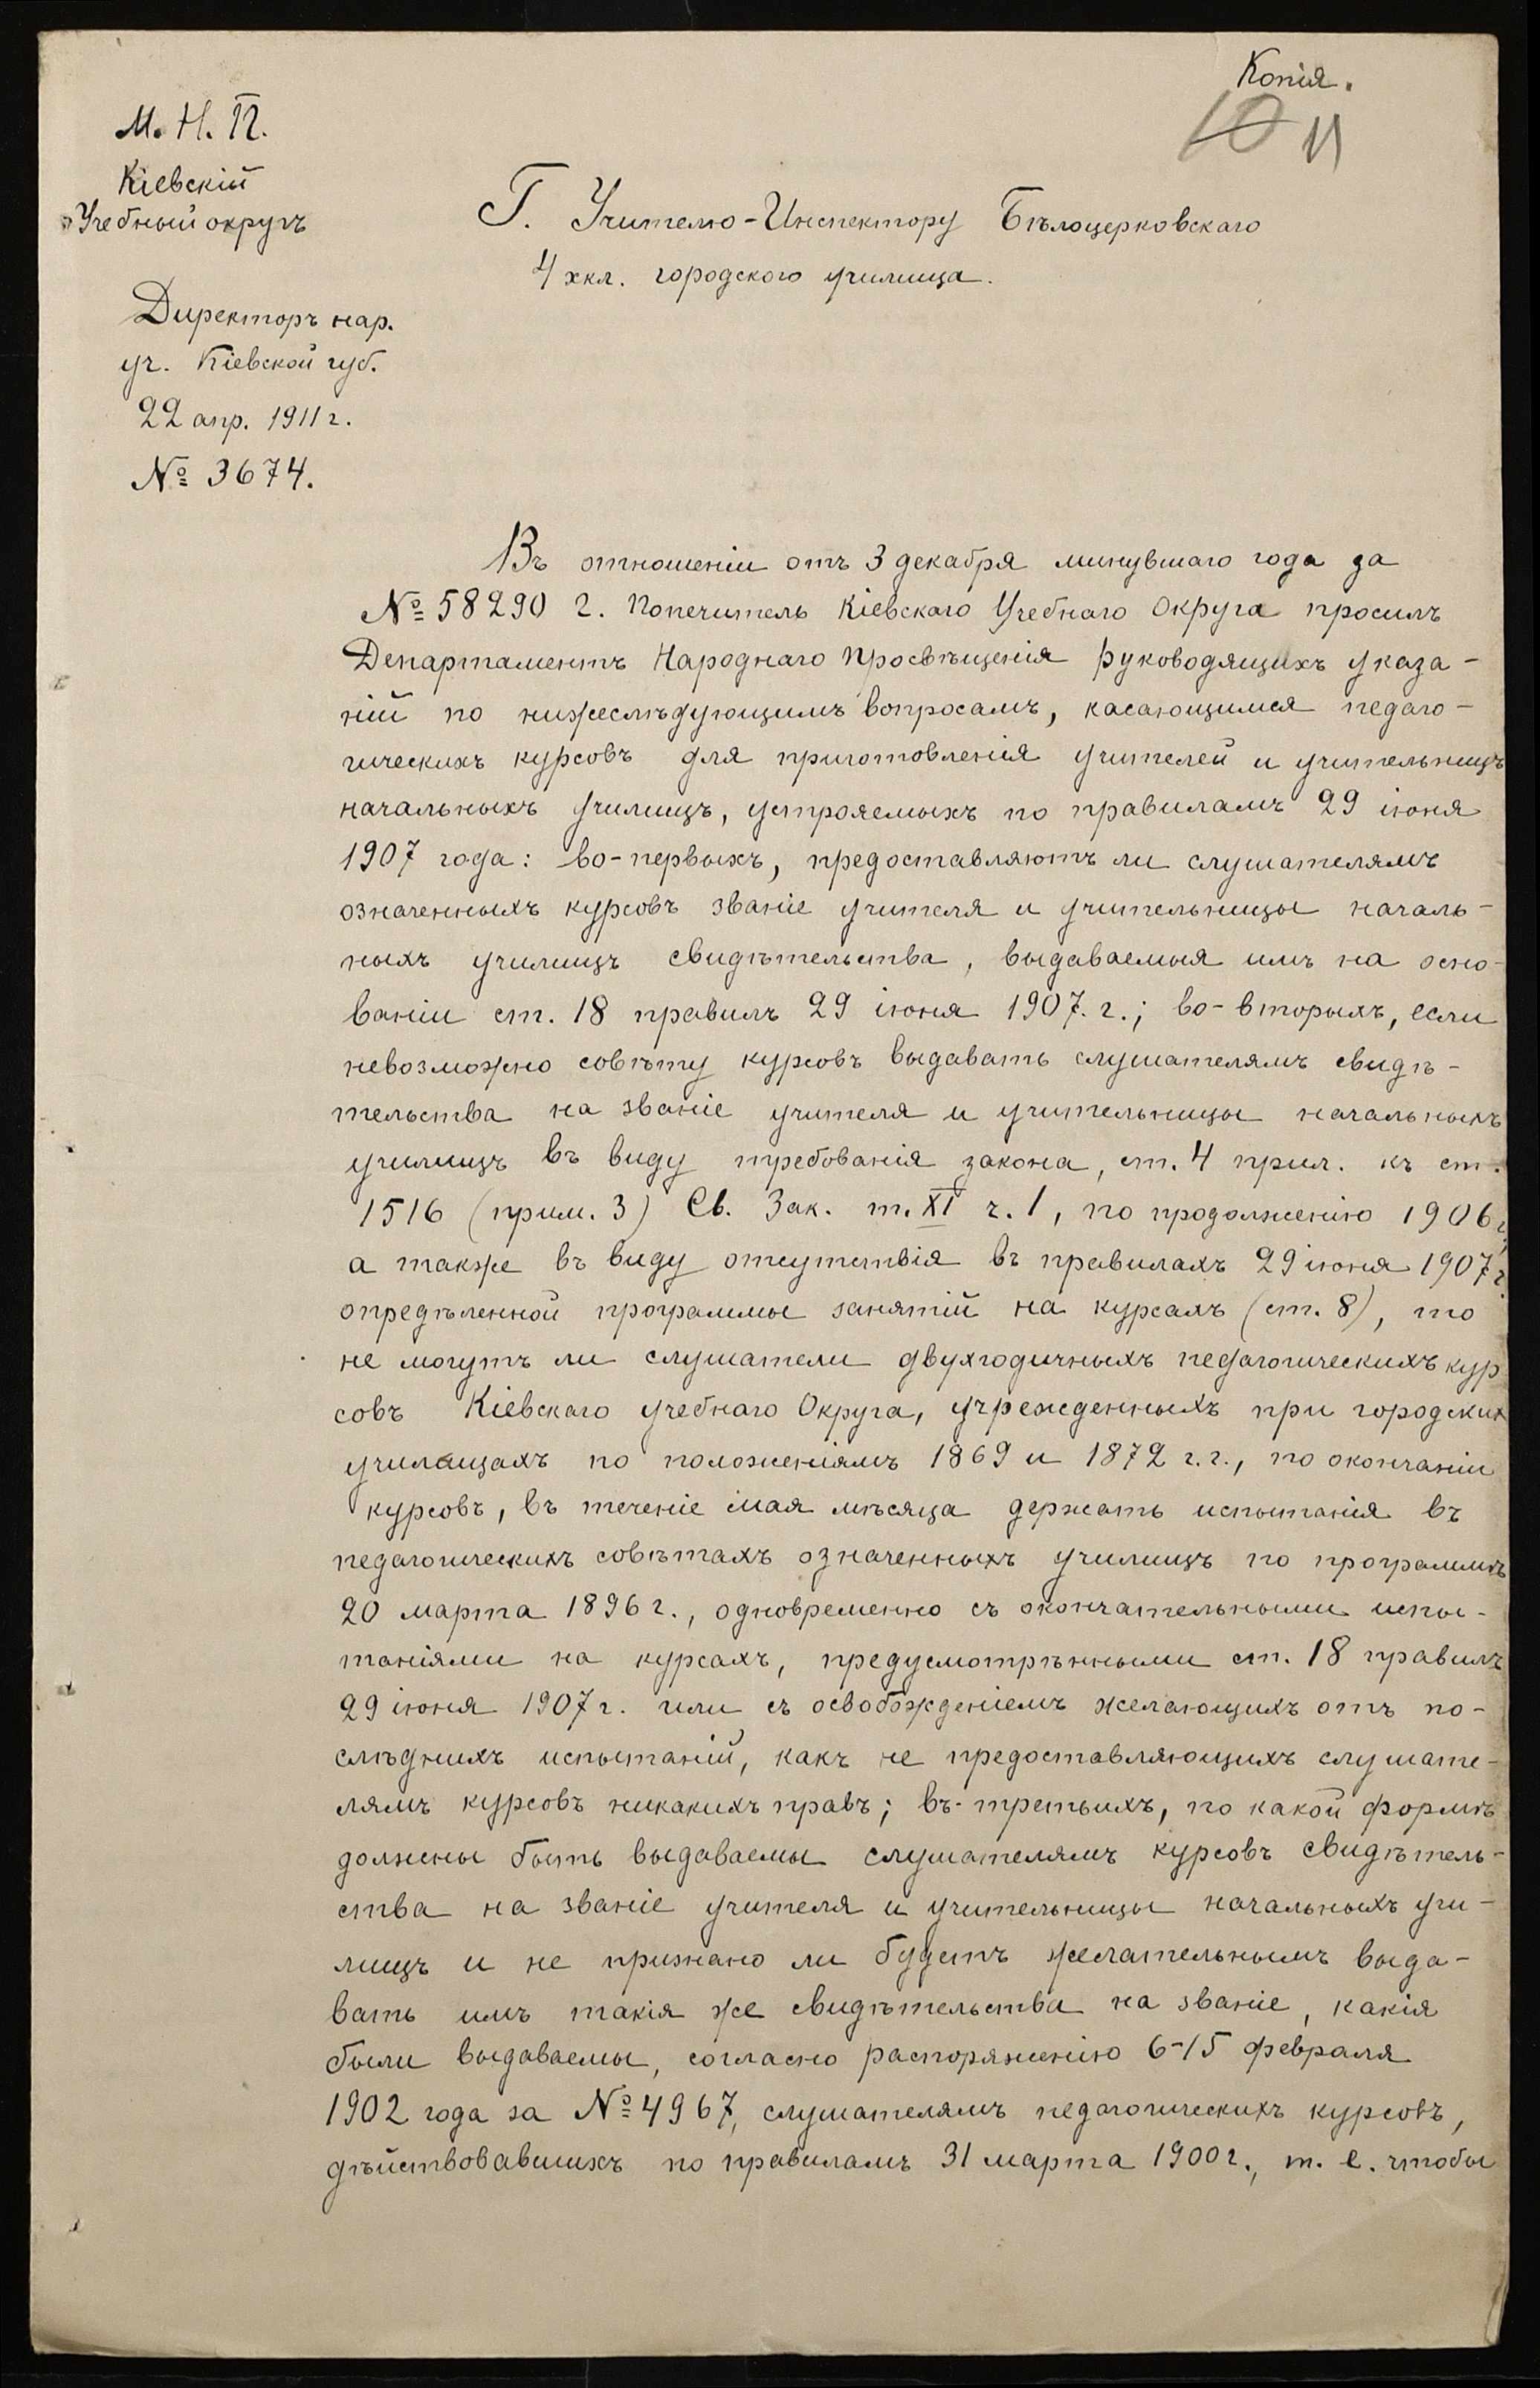 Копія.
10 11
М. Н. П.
Кіевскій
Учебный округъ
Директоръ нар.
уч. Кіевской губ.
22 апр. 1911 г.
№ 3674.
Г. Учителю-Инспектору Бѣлоцерковскаго
4 хкл. городского училища.
Въ отношеніи отъ 3 декабря минувшаго года за
№ 58290 г. Попечитель Кіевскаго Учебнаго Округа просилъ
Департаментъ Народнаго Просвѣщенія руководящихъ указа-
ній по нижеслѣдующимъ вопросамъ, касающимся педаго-
гическихъ курсовъ для приготовленія учителей и учительницъ
начальныхъ училищъ, устрояемыхъ по правиламъ 29 іюня
1907 года: во-первыхъ, предоставляютъ ли слушателямъ
означенныхъ курсовъ званіе учителя и учительницы началь-
ныхъ училищъ свидѣтельства, выдаваемыя имъ на осно-
ваніи ст. 18 правилъ 29 іюня 1907. г.; во-вторыхъ, если
невозможно совѣту курсовъ выдавать слушателямъ свидѣ-
тельства на званіе учителя и учительницы начальныхъ
училищъ въ виду требованія закона, ст. 4 прил. къ ст.
1516 (прим. 3) Св. Зак. т. XI ч. 1, по продолженію 1906 г.,
а также въ виду отсутствія въ правилахъ 29 іюня 1907 г.
опредѣленной программы занятій на курсахъ (ст. 8), то
не могутъ ли слушатели двухгодичныхъ педагогическихъ кур
совъ Кіевскаго учебнаго Округа, учрежденныхъ при городских
училищахъ по положеніямъ 1869 и 1872 г.г., по окончаніи
курсовъ, въ теченіе мая мѣсяца держать испытанія въ
педагогическихъ совѣтахъ означенныхъ училищъ по программѣ
20 марта 1896 г., одновременно съ окончательными испы-
таніями на курсахъ, предусмотрѣнными ст. 18 правилъ
29 іюня 1907 г. или съ освобожденіемъ желающихъ отъ по-
слѣднихъ испытаній, какъ не предоставляющихъ слушате-
лямъ курсовъ никакихъ правъ; въ-третьихъ, по какой формѣ
должны быть выдаваемы слушателямъ курсовъ свидѣтель-
ства на званіе учителя и учительницы начальныхъ учи-
лищъ и не признано ли будетъ желательнымъ выда-
вать имъ такія же свидѣтельства на званіе, какія
были выдаваемы, согласно распоряженію 6-15 февраля
1902 года за № 4967, слушателямъ педагогическихъ курсовъ,
дѣйствовавшихъ по правиламъ 31 марта 1900 г., т. е. чтобы